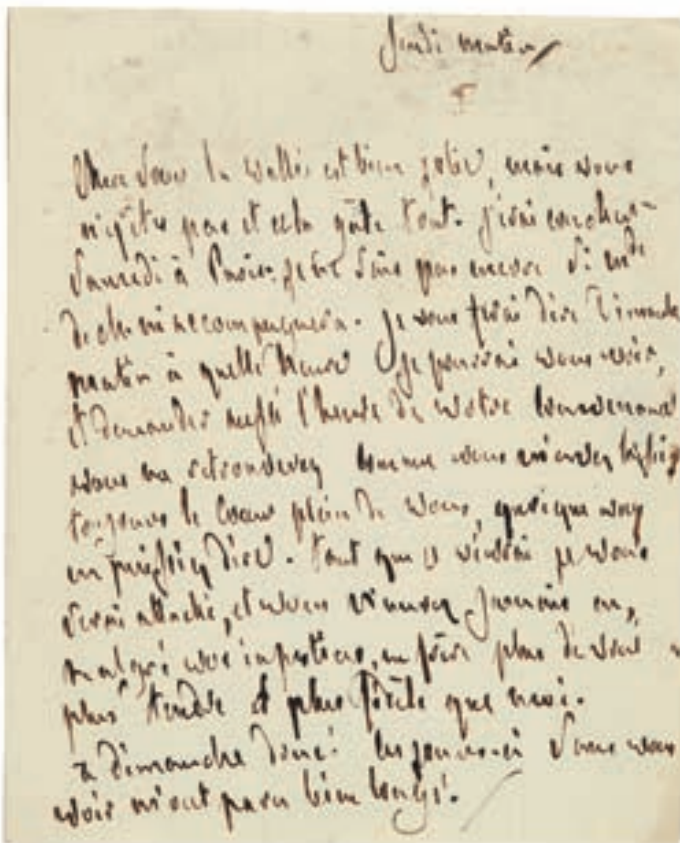 Jeudi matin
Chère Soeur la vallée est bien jolie, mais vous
n'y êtes pas et cela gâte tout. J'irai coucher
Samedi à Paris. je ne sais pas encore si mde
de m'accompagnera. je vous ferai dire Dimanche
matin à quelle heure je pourrai vous voir,
et demander aussi l'heure de votre convenance
vous me retrouverez comme vous m'avez laissé
toujours le coeur plein de vous, quoique vous
en puissiez dire. tant que je vivrai je vous
serai attaché, et vous n'aurez jamais eu,
malgré vos injustices, un frère plus
plus tendre et plus fidèle que moi.
à dimanche donc! les jours-ci sans vous
voir m'ont paru bien longs!